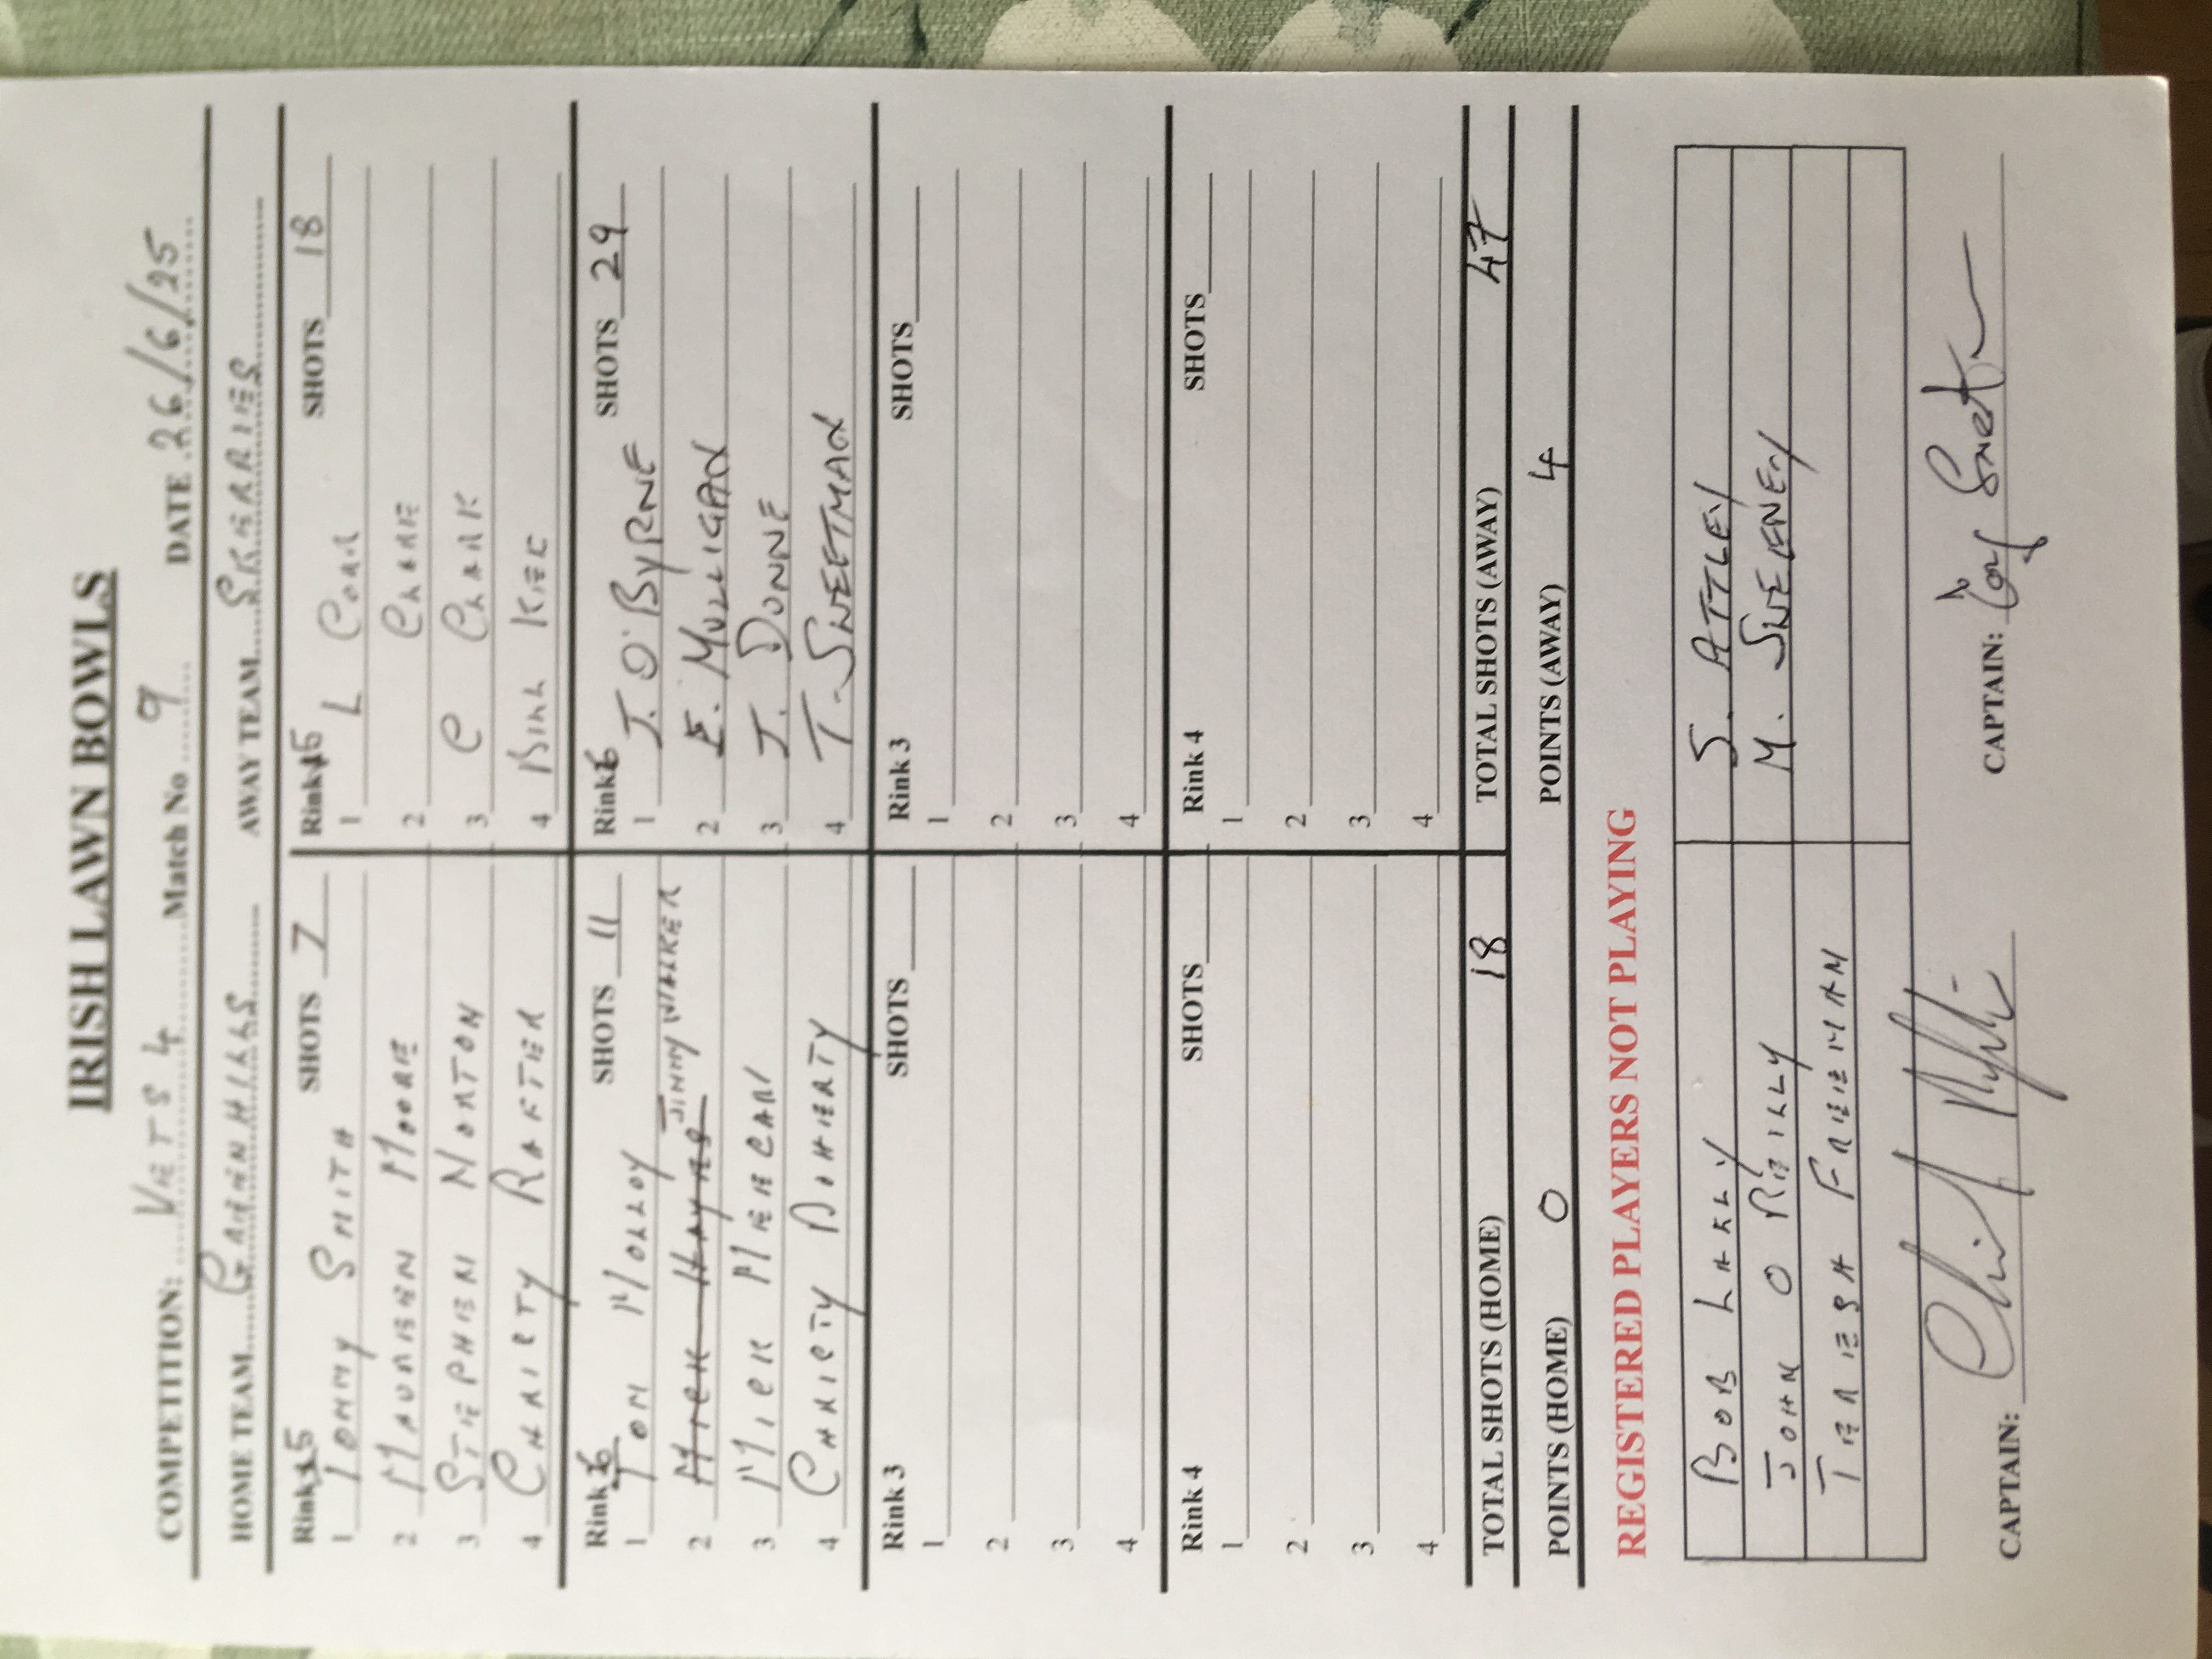 IRISH LAWN BOWLS
COMPETITION: VETS 4 Match No 9 DATE 26/6/25
HOME TEAM GREENHILLS AWAY TEAM SKERRIES
Rink 5 SHOTS 7 Rink 5 SHOTS 18
1 TOMMY SMITH 1 L
2 MAUREEN MOORE 2
3 STEPHEN NORTON 3 C CLARK
4 CHRISTY RAFTER 4 BILL KIEC
Rink 6 SHOTS 11 Rink 6 SHOTS 29
1 TOM MOLLOY 1 J. O'BYRNE
2 MICK HAYNES JIMMY WALKER 2 E. MULLIGAN
3 MICK MEECAN 3 J. DUNNE
4 CHRISTY DOHERTY 4 T. SWEETMAN
Rink 3 SHOTS Rink 3 SHOTS
1 1
2 2
3 3
4 4
Rink 4 SHOTS Rink 4 SHOTS
1 1
2 2
3 3
4 4
TOTAL SHOTS (HOME) 18 TOTAL SHOTS (AWAY) 47
POINTS (HOME) 0 POINTS (AWAY) 4
REGISTERED PLAYERS NOT PLAYING
BOB LAKLY S. ATTLEY
JOHN O REILLY M. SWEENEY
TERESA FREEMAN
CAPTAIN: CAPTAIN: